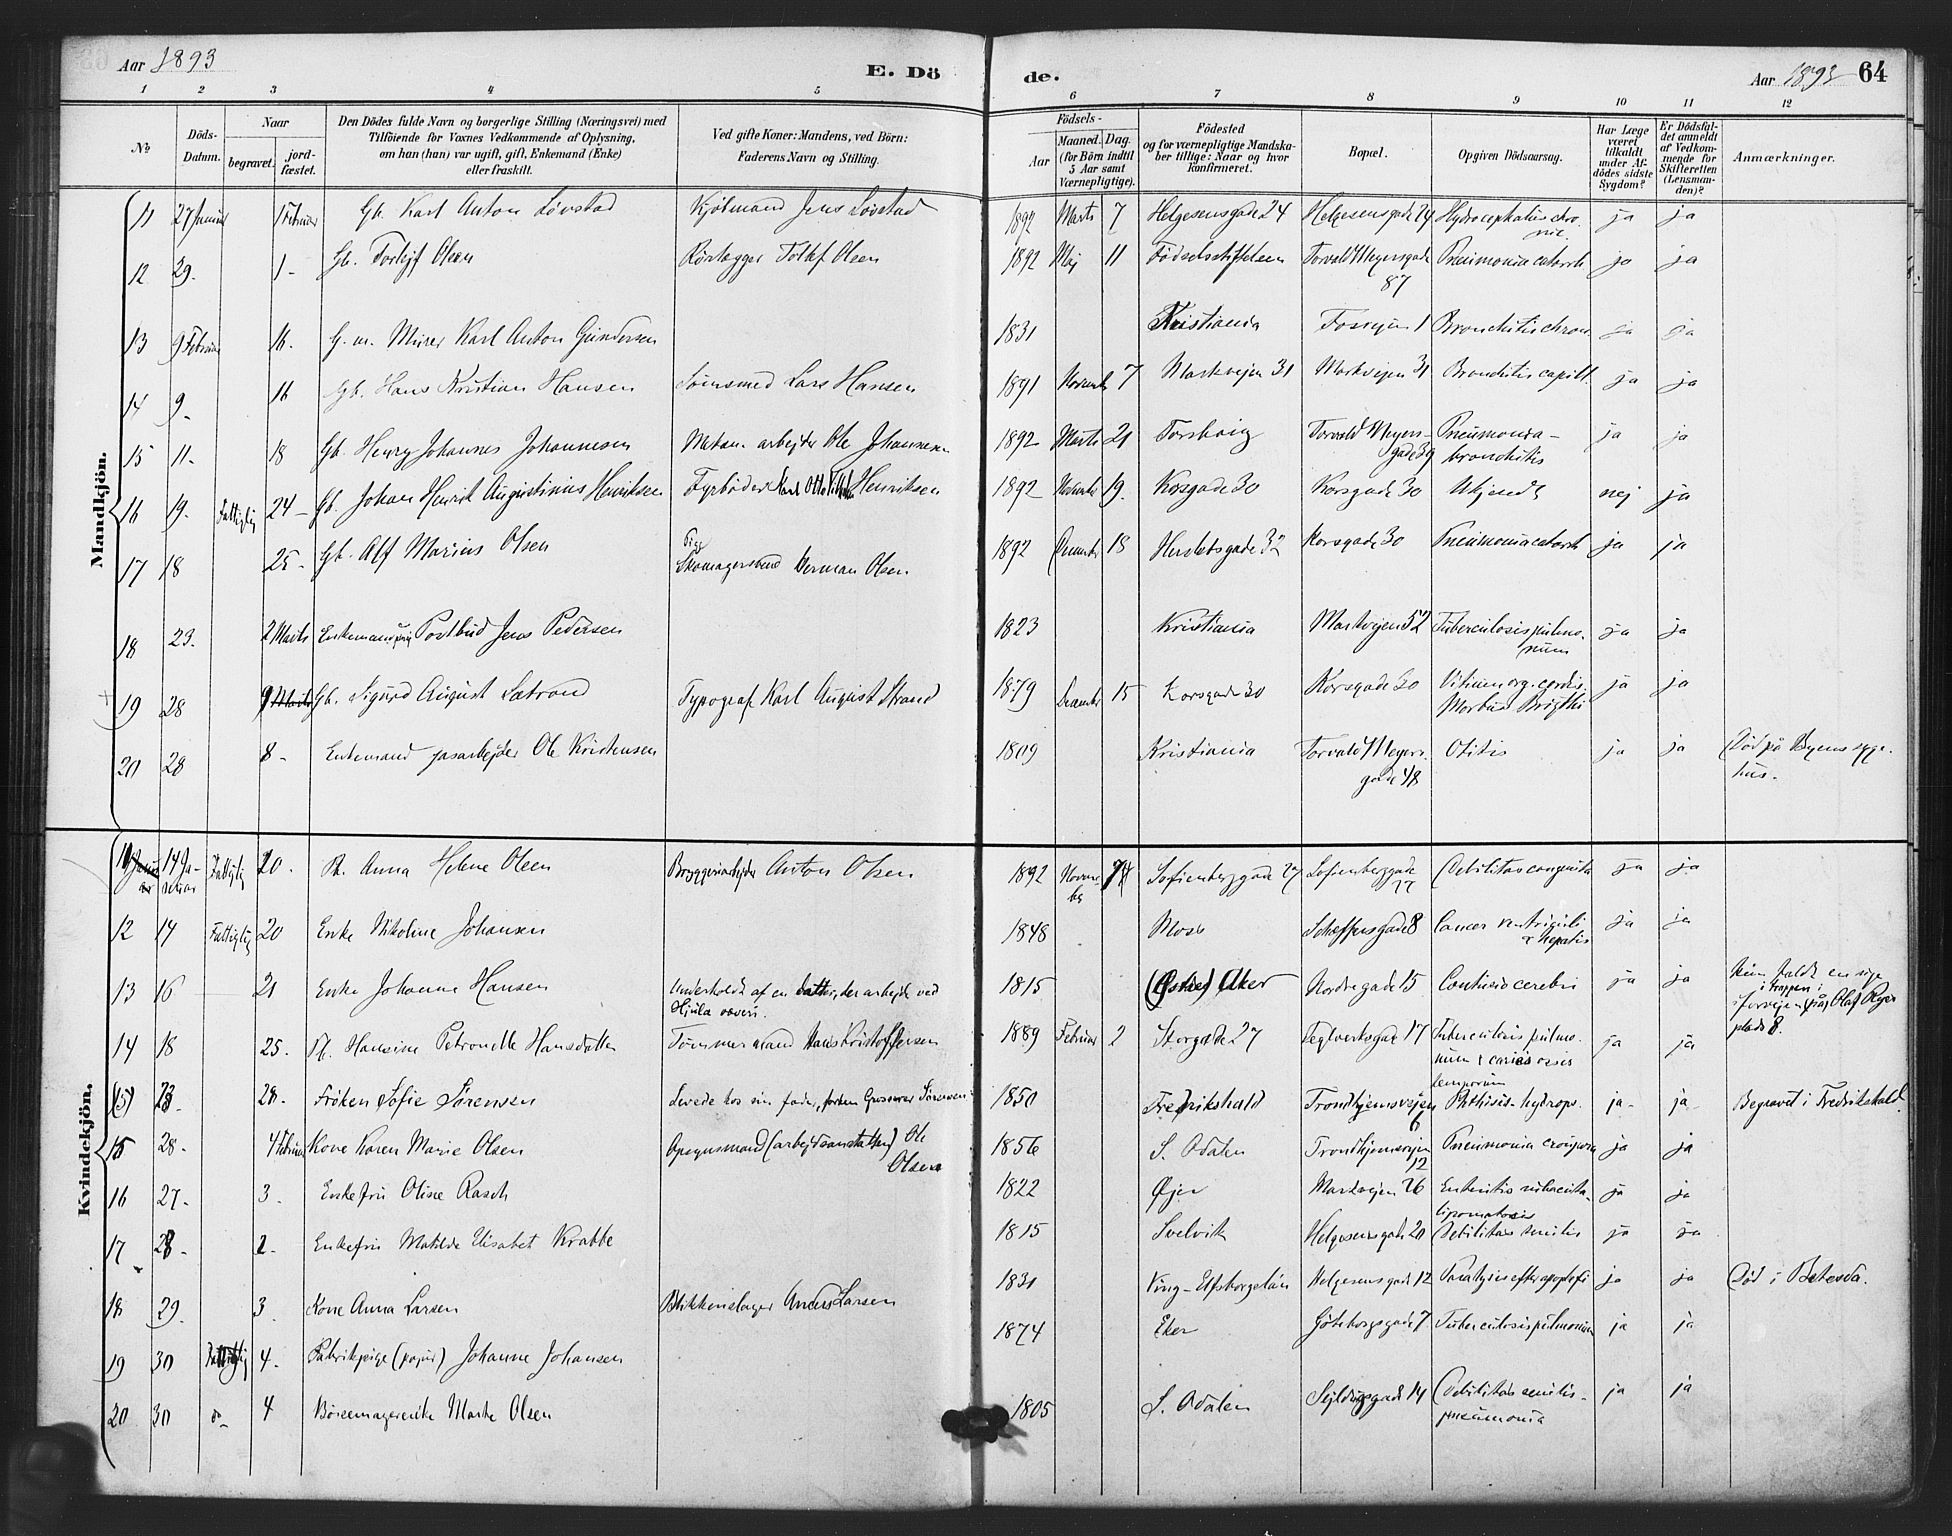 Aar 1893 E. Dö de. Aar 1893 64
1 2 3 4 5 6 7 8 9 10 11 12
№
Döds-Datum.
Naar begravet. jordfæstet.
Den Dödes fulde Navn og borgerlige Stilling (Næringsvei) med Tilföiende for Voxnes Vedkommende af Oplysning, om han (han) var ugift, gift, Enkemand (Enke) eller fraskilt.
Ved gifte Koner: Mandens, ved Börn: Faderens Navn og Stilling.
Födsels-
Aar Maaned. Dag. (for Börn indtil 5 Aar samt Værnepligtige).
Födested og for værnepligtige Mandskaber tillige: Naar og hvor konfirmeret.
Bopæl.
Opgiven Dödsaarsag.
Har Læge været tilkaldt under Afdödes sidste Sygdom?
Er Dödsfaldet anmeldt af Vedkommende for Skifteretten (Lensmanden)?
Anmærkninger.
Mandkjön.
11 27 Januar 1 Februar Gb. Karl Anton Lövstad Kjöbmand Jens Lövstad 1892 Marts 7 Helgesensgade 24 Helgesensgade 24 Hydrocephalus chronic. ja ja
12 29. 1 - Gb. Olsen Rörlægger Olsen 1892 Maj 11 Födselsstiftelsen Torvald Meyersgade 87 Pneumonia catarrh ja ja
13 9 Februar 16. G. m. Murer Karl Anton Gundersen 1831 Kristiania Fossvejen 1 Bronchitis chron ja ja
14 9. 16 Gb. Hans Kristian Hansen Sömsmed Lars Hansen 1891 Novemb 7 Markvejen 31 Markvejen 31 Bronchitis capill. ja ja
15 11. 18 Gb. Henry Johannes Johannesen Mekan. arbejder Ole Johannesen 1892 Marts 21 Torvald Meyersgade 39 Pneumonia - bronchitis ja ja
16 19. Fattiglig 24 - Gb. Johan Henrik Augustinius Henriksen Fyrböder Karl Otto Henriksen 1892 Novembr 19. Korsgade 30 Korsgade 30 Ukjendt nej ja
17 18 25. Gb. Alf Marius Olsen Skomagersvend Herman Olsen 1892 December 18 Herslebsgade 32 Korsgade 30 Pneumonia catarrh ja ja
18 23. 2 Marts Enkemand Postbud Jens Pedersen 1823 Kristiania Markvejen 52 Tuberculosis pulmonum ja ja
19 28 9 Marts Gb. Sigurd August Sætrand Typograf Karl August Strand 1879 December 15 Korsgade 30 Korsgade 30 Vitium org. cordis. Morbus Brigthi ja ja
20 28 8 - Enkemand gasarbejder Ole Kristensen 1809 Kristiania Torvald Meyersgade 48 Otitis ja ja Död på Byens sygehus.
Kvindekjön.
11 14 Januar Fattiglig 20. Pb. Anna Helene Olsen Bryggeriarbejder Anton Olsen 1892 November 14 Sofienberggade 27 Sofienberggade 27 Debilitas congenita ja ja
12 14 Fattiglig 20 Enke Nikoline Johansen 1848 Moss Schæffersgade 8 Cancer ventriculi & hepatis ja ja
13 16 21 Enke Johanne Hansen Underholdt af en datter, der arbejder ved Hjula væveri. 1815 (Östre) Aker Nordregade 15 Contusio cerebri ja ja Hun faldt en uge i trappen i forvejen på Olaf Ryes plads 8.
14 18 25. Pb. Hansine Petronelle Hansdatter Tömmermand Hans Kristoffersen 1889 Februar 2 Storgade 27 Teglverksgade 17 Tuberculosis pulmonum & caries ossis temporum ja ja
(15) 23. 28. Fröken Sofie Sörensen Levede hos sin fader, Grosserer Sörensen 1850 Fredrikshald Trondhjemsvejen 6 Phthisis - hydrops. ja - ja - Begravet i Fredrikshald.
15 28. 4 Februar Kone Karen Marie Olsen Opsynsmand (arbejdsanstalten) Ole Olsen 1856 S. Odalen Trondhjemsvejen 12 Pneumonia crouposa ja ja
16 27. 3. Enkefru Oline Rasch 1822 Öjer Markvejen 26 Enteritis ja ja
17 28. 2. Enkefru Matilde Elisabet Krabbe 1815 Svelvik Helgesensgade 20 lipomatosis Debilitas senilis ja ja
18 29. 3. Kone Anna Larsen Blikkenslager Anders Larsen 1831 Ving - Elfsborgslän Helgesensgade 12 Paralysis efter apoplexi ja ja Död i Betesda.
19 30 Fattiglig 4. Fabrikpige (papir) Johanne Johansen 1874 Eker Göteborgsgade 7 Tuberculosis pulmonum ja ja
20 30 do - 4 Börsemagerenke Marte Olsen 1805 S. Odalen Sejlduggade 14 Debilitas senilis - pneumonia ja ja